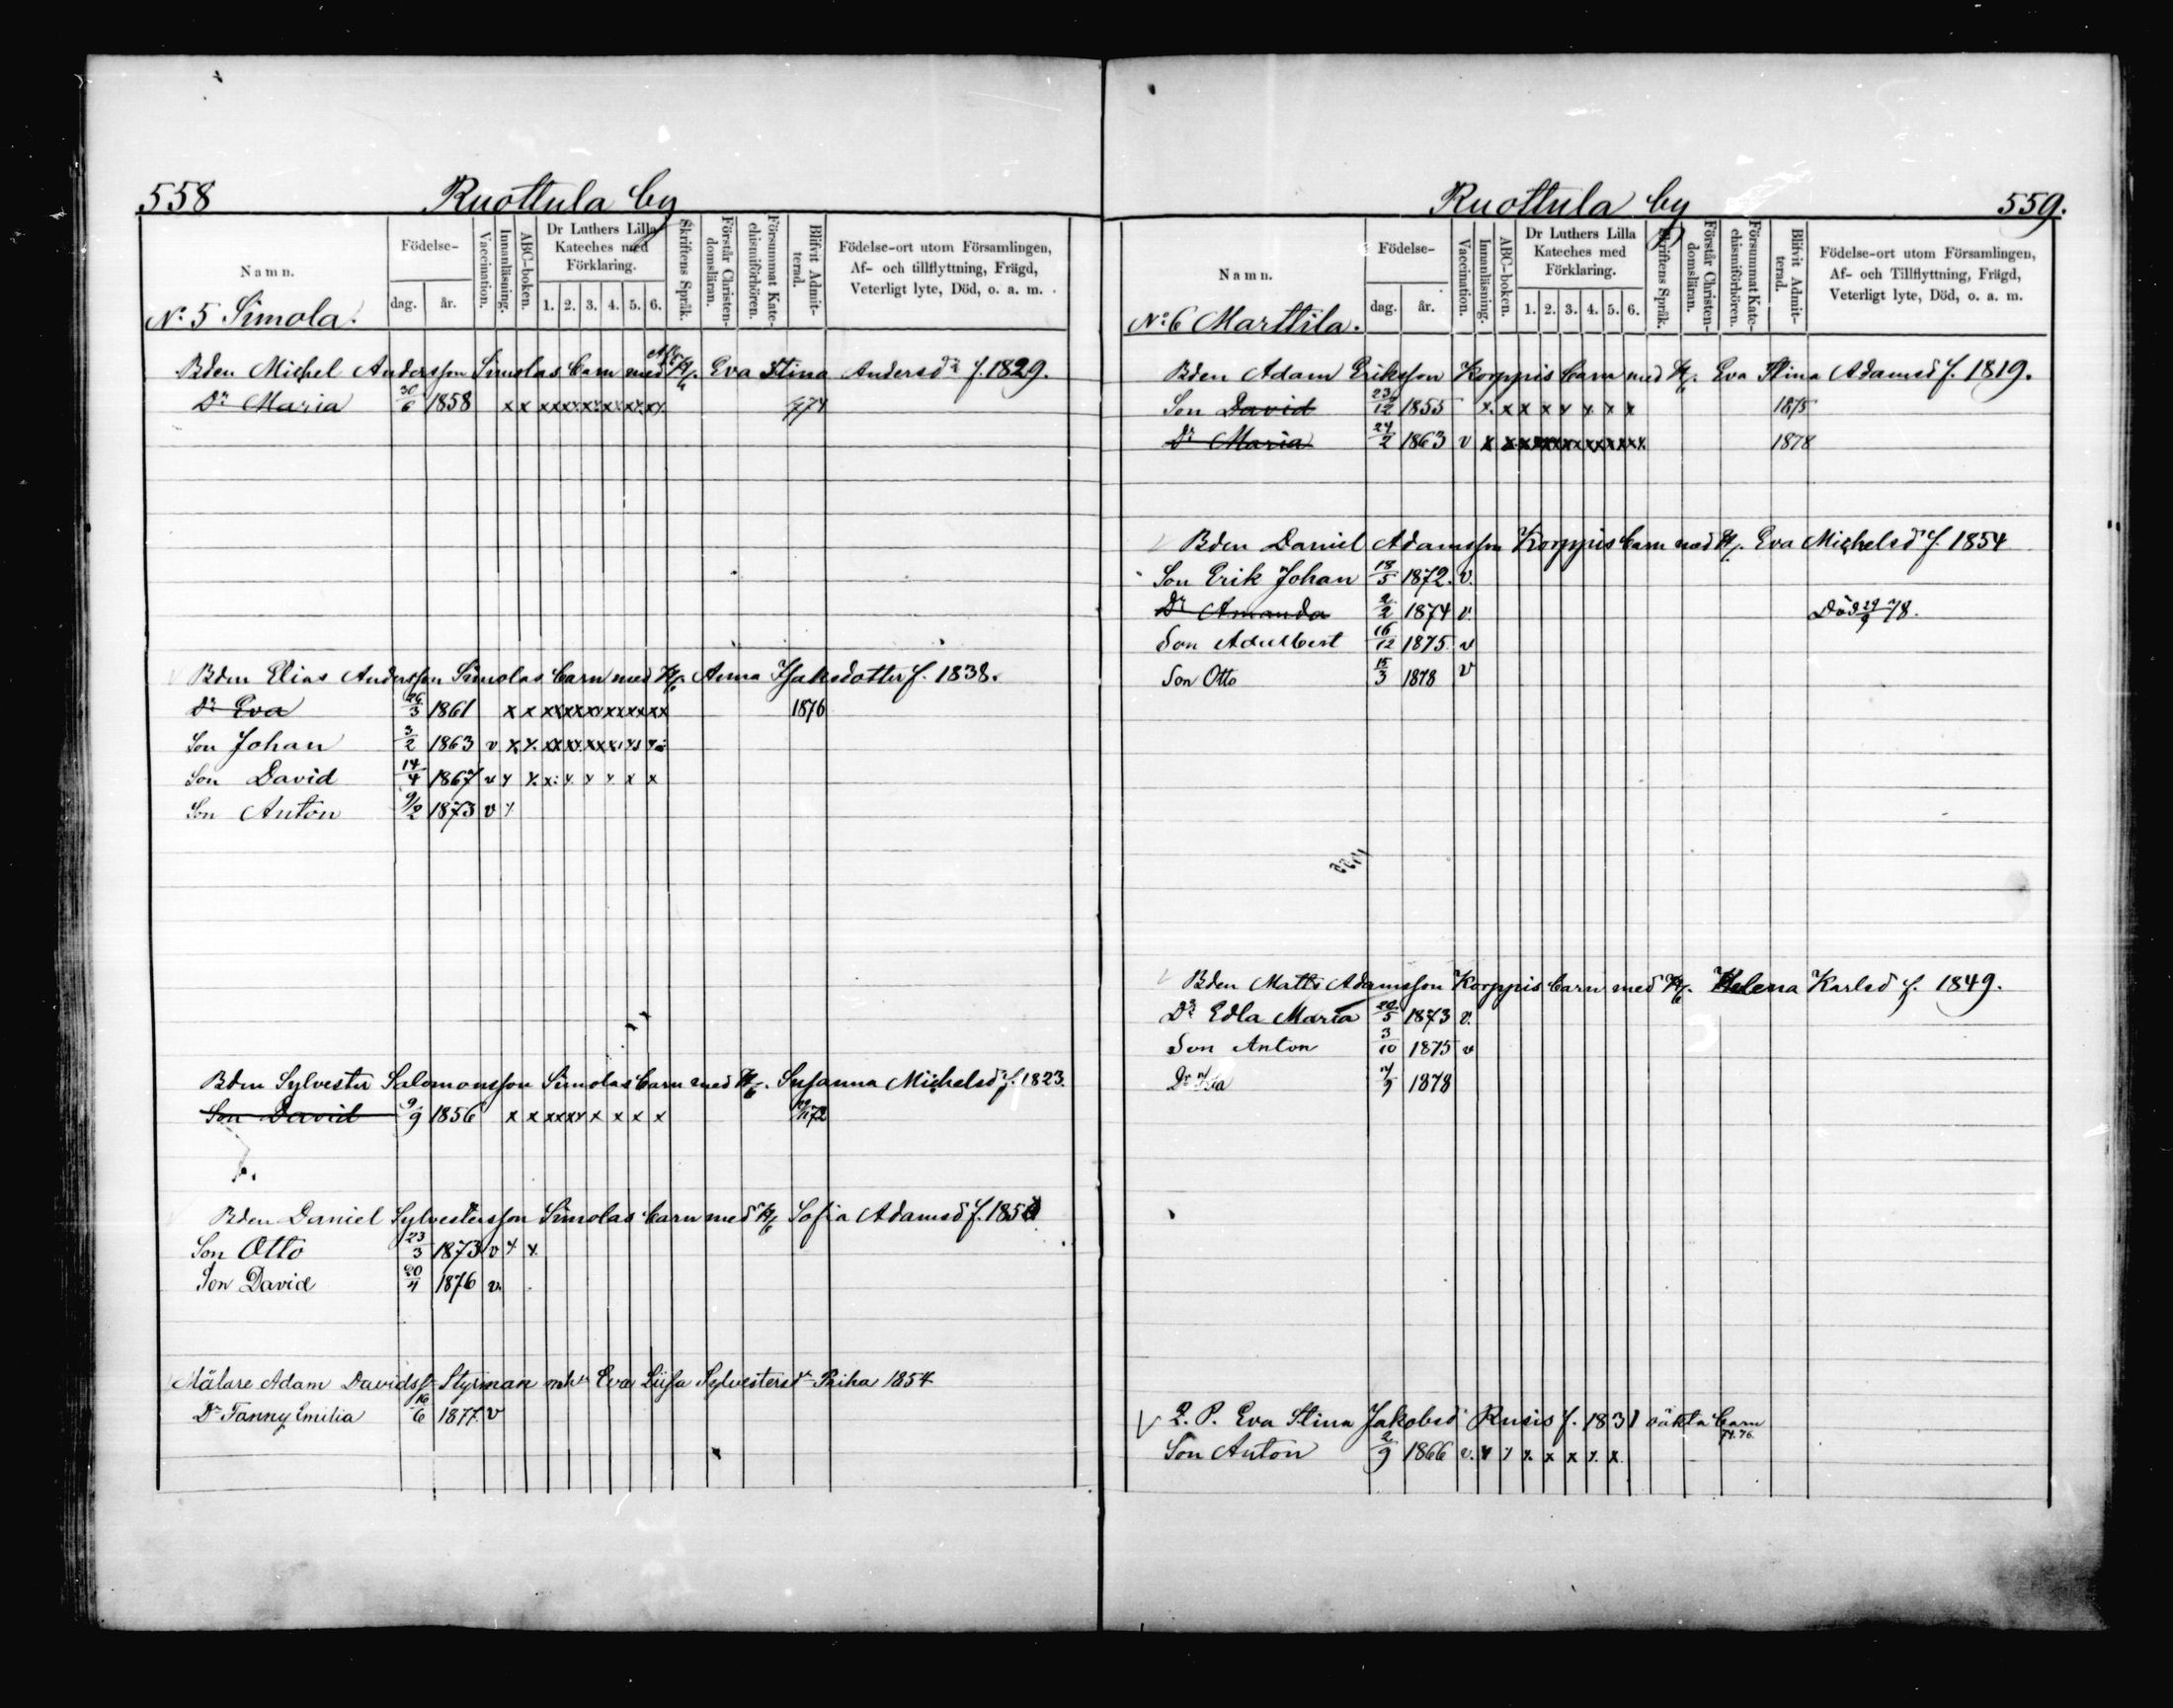 558 Ruottula by
Namn. Födelse- dag. år. Vaccination. Innanläsning. ABC-boken. Dr Luthers Lilla Kateches med Förklaring. 1. 2. 3. 4. 5. 6. Skriftens Språk. Förstår Christendomsläran. Försummat Katechismiförhören. Blifvit Admitterad. Födelse-ort utom Församlingen, Af- och tillflyttning, Frägd, Veterligt lyte, Död, o. a. m.
No 5 Simola.
Bden Michel Andersson Simolas barn med H. Eva Stina Andersdr f. 1829.
Dr Maria 30/6 1858 x x xx xx xx xx xx xx
Bden Elias Andersson Simolas barn med H. Anna Isaksdotter f. 1838.
Dr Eva 26/3 1861 x x xxx xxx xx xx xx xx 1876
Son Johan 3/2 1863 v x x xx xx xx xx
Son David 14/4 1867 v x x x x x x x x
Son Anton 9/2 1873 v x
Bden Sylvester Salomonsson Simolas barn med H. Susanna Michelsdr f. 1823.
Son David 9/9 1856 x x xx xx x x x x
Bden Daniel Sylvestersson Simolas barn med H. Sofia Adamsd f.
Son Otto 23/3 1873 v x x
Son David 20/4 1876 v.
Mälare Adam Davidss Styrman Eva Liisa Sylvestersdr Riha 1854
Dr Fanny Emilia 16/6 1877 v
Ruottula by 559.
Namn. Födelse- dag. år. Vaccination. Innanläsning. ABC-boken. Dr Luthers Lilla Kateches med Förklaring. 1. 2. 3. 4. 5. 6. Skriftens Språk. Förstår Christendomsläran. Försummat Katechismiförhören. Blifvit Admitterad. Födelse-ort utom Församlingen, Af- och Tillflyttning, Frägd, Veterligt lyte, Död, o. a. m.
No 6 Marttila.
Bden Adam Eriksson Korppis barn med H. Eva Stina Adamsd f. 1819.
Son David 23/12 1855 x x x x x x x x 1875
Dr Maria 24/2 1863 v x x x xx xx xx xx xx 1878
Bden Daniel Adamsson Korppis barn med H. Eva Michelsdr f. 1854
Son Erik Johan 18/5 1872. v.
Dr Amanda 2/2 1874 v. Död 29/9 78.
Son Adelbert 16/12 1875 v
Son Otto 15/3 1878 v
Bden Matts Adamsson Korppis barn med H. Helena Karlsd f. 1849.
Dr Edla Maria 20/5 1873 v.
Son Anton 3/10 1875 v
Dr Ida 1878
Eva Stina Jakobsd Rusis f. 1831 oäkta barn
Son Anton 2/9 1866 v. x x x x x x x